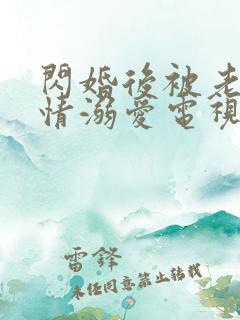 閃婚後被老
情溺愛電視
雷鋒
未經同意禁止轉載